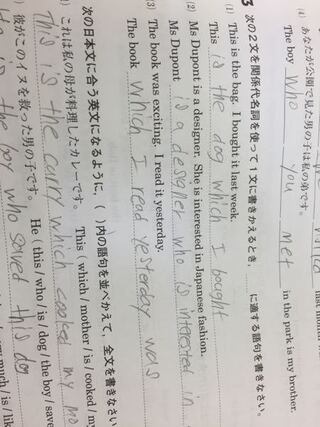 (4) あなたが公園で見た男の子は私の弟です。
The boy who you met in the park is my brother.
3 次の2文を関係代名詞を使って1文に書きかえるとき, に適する語句を書きなさい。
(1) This is the bag. I bought it last week.
This is the dog which I bought
(2) Ms Dupont is a designer. She is interested in Japanese fashion.
Ms Dupont is a designer who is interested in
(3) The book was exciting. I read it yesterday.
The book which I read yesterday was
次の日本文に合う英文になるように, ( )内の語句を並べかえて, 全文を書きなさい
これは私の母が料理したカレーです。 This ( which / mother / is / cooked / my
This is the curry which cooked my mo
彼がこのイヌを救った男の子です。 He ( this / who / is / dog / the boy / save
is the boy who saved this dog
much / is / lik